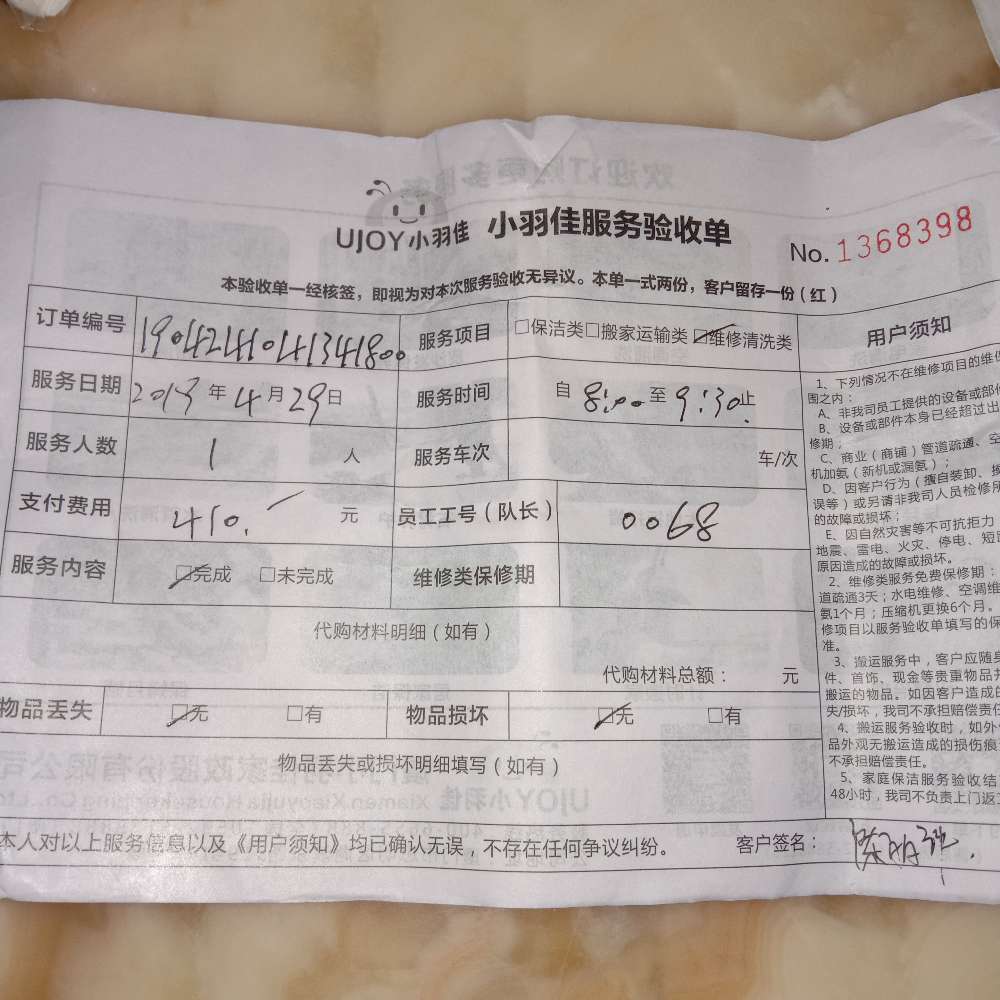 UJOY小羽佳 小羽佳服务验收单
No. 1368398
本验收单一经核签，即视为对本次服务验收无异议。本单一式两份，客户留存一份（红）
订单编号 服务项目 □保洁类□搬家运输类☑维修清洗类
服务日期 年 4 月 29 日 服务时间 自 8:00 至 9:30 止
服务人数 1 人 服务车次 车/次
支付费用 410. 元 员工工号（队长） 0068
服务内容 ☑完成 □未完成 维修类保修期
代购材料明细（如有）
代购材料总额： 元
物品丢失 ☑无 □有 物品损坏 ☑无 □有
物品丢失或损坏明细填写（如有）
本人对以上服务信息以及《用户须知》均已确认无误，不存在任何争议纠纷。 客户签名：
用户须知
1、下列情况不在维修项目的维
围之内：
A、非我司员工提供的设备或部
B、设备或部件本身已经超过出
修期；
C、商业（商铺）管道疏通、空
机加氨（新机或漏氨）；
D、因客户行为（擅自装卸、损
误等）或另请非我司人员检修所
的故障或损坏；
E、因自然灾害等不可抗拒力
地震、雷电、火灾、停电、短
原因造成的故障或损坏。
2、维修类服务免费保修期：
道疏通3天；水电维修、空调维
氨1个月；压缩机更换6个月。
修项目以服务验收单填写的保
准。
3、搬运服务中，客户应随身
件、首饰、现金等贵重物品并
搬运的物品。如因客户造成的
失/损坏，我司不承担赔偿责任
4、搬运服务验收时，如外
品外观无搬运造成的损伤痕
不承担赔偿责任。
5、家庭保洁服务验收结
48小时，我司不负责上门返